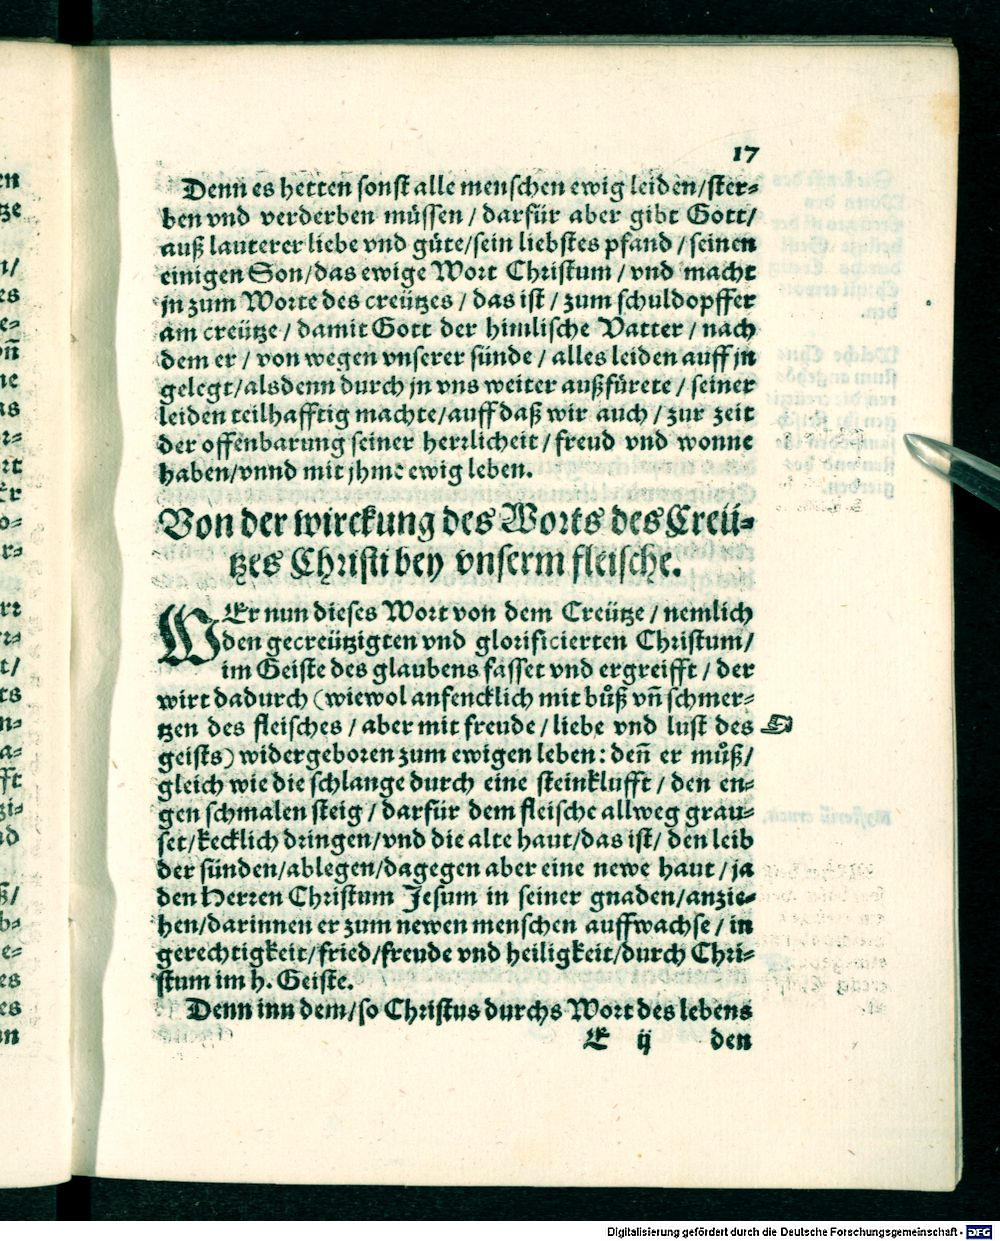 17
Denn es hetten sonst alle menschen ewig leiden/ster-
ben vnd verderben müssen/darfür aber gibt Gott/
auß lauterer liebe vnd güte/sein liebstes pfand/seinen
einigen Son/das ewige Wort Christum/vnd macht
jn zum Worte des creützes/das ist/zum schuldopffer
am creütze/damit Gott der himlische Vatter/nach
dem er/von wegen vnserer sünde/alles leiden auff jn
gelegt/alsdenn durch jn vns weiter außfürete/seiner
leiden teilhafftig machte/auff daß wir auch/zur zeit
der offenbarung seiner herzlicheit/freud vnd wonne
haben/vnnd mit jhme ewig leben.
Von der wirckung des Worts des Creü-
tzes Christi bey vnserm fleische.
WEr nun dieses Wort von dem Creütze/nemlich
den gecreützigten vnd glorificierten Christum/
im Geiste des glaubens fasset vnd ergreifft/der
wirt dadurch (wiewol anfencklich mit bůß vñ schmer-
tzen des fleisches/aber mit freude/liebe vnd lust des
geists) widergeboren zum ewigen leben: deñ er můß/
gleich wie die schlange durch eine steinklufft/den en-
gen schmalen steig/darfür dem fleische allweg grau-
set/kecklich dringen/vnd die alte haut/das ist/den leib
der sünden/ablegen/dagegen aber eine newe haut/ja
den Herren Christum Jesum in seiner gnaden/anzie-
hen/darinnen er zum newen menschen auffwachse/in
gerechtigkeit/fried/freude vnd heiligkeit/durch Chri-
stum im h. Geiste.
Denn inn dem/so Christus durchs Wort des lebens
E ij den
Digitalisierung gefördert durch die Deutsche Forschungsgemeinschaft - DFG